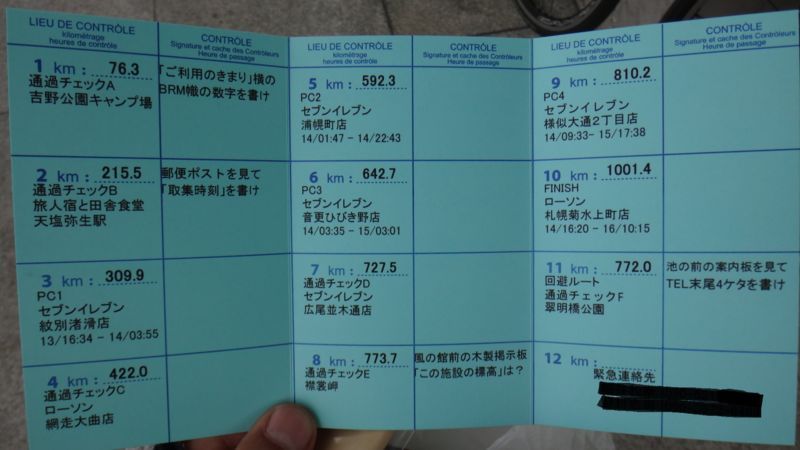 LIEU DE CONTRÔLE
kilométrage
heures de contrôle
CONTRÔLE
Signature et cache des Contrôleurs
Heure de passage
1 km : 76.3
通過チェックA
吉野公園キャンプ場
「ご利用のきまり」横の
BRM幟の数字を書け
2 km : 215.5
通過チェックB
旅人宿と田舎食堂
天塩弥生駅
郵便ポストを見て
「取集時刻」を書け
3 km : 309.9
PC1
セブンイレブン
紋別渚滑店
13/16:34 - 14/03:55
4 km : 422.0
通過チェックC
ローソン
網走大曲店
LIEU DE CONTRÔLE
kilométrage
heures de contrôle
CONTRÔLE
Signature et cache des Contrôleurs
Heure de passage
5 km : 592.3
PC2
セブンイレブン
浦幌町店
14/01:47 - 14/22:43
6 km : 642.7
PC3
セブンイレブン
音更ひびき野店
14/03:35 - 15/03:01
7 km : 727.5
通過チェックD
セブンイレブン
広尾並木通店
8 km : 773.7
通過チェックE
襟裳岬
風の館前の木製掲示板
「この施設の標高」は?
LIEU DE CONTRÔLE
kilométrage
heures de contrôle
CONTRÔLE
Signature et cache des Contrôleurs
Heure de passage
9 km : 810.2
PC4
セブンイレブン
様似大通2丁目店
14/09:33- 15/17:38
10 km : 1001.4
FINISH
ローソン
札幌菊水上町店
14/16:20 - 16/10:15
11 km : 772.0
回避ルート
通過チェックF
翠明橋公園
池の前の案内板を見て
TEL末尾4ケタを書け
12 km :
緊急連絡先